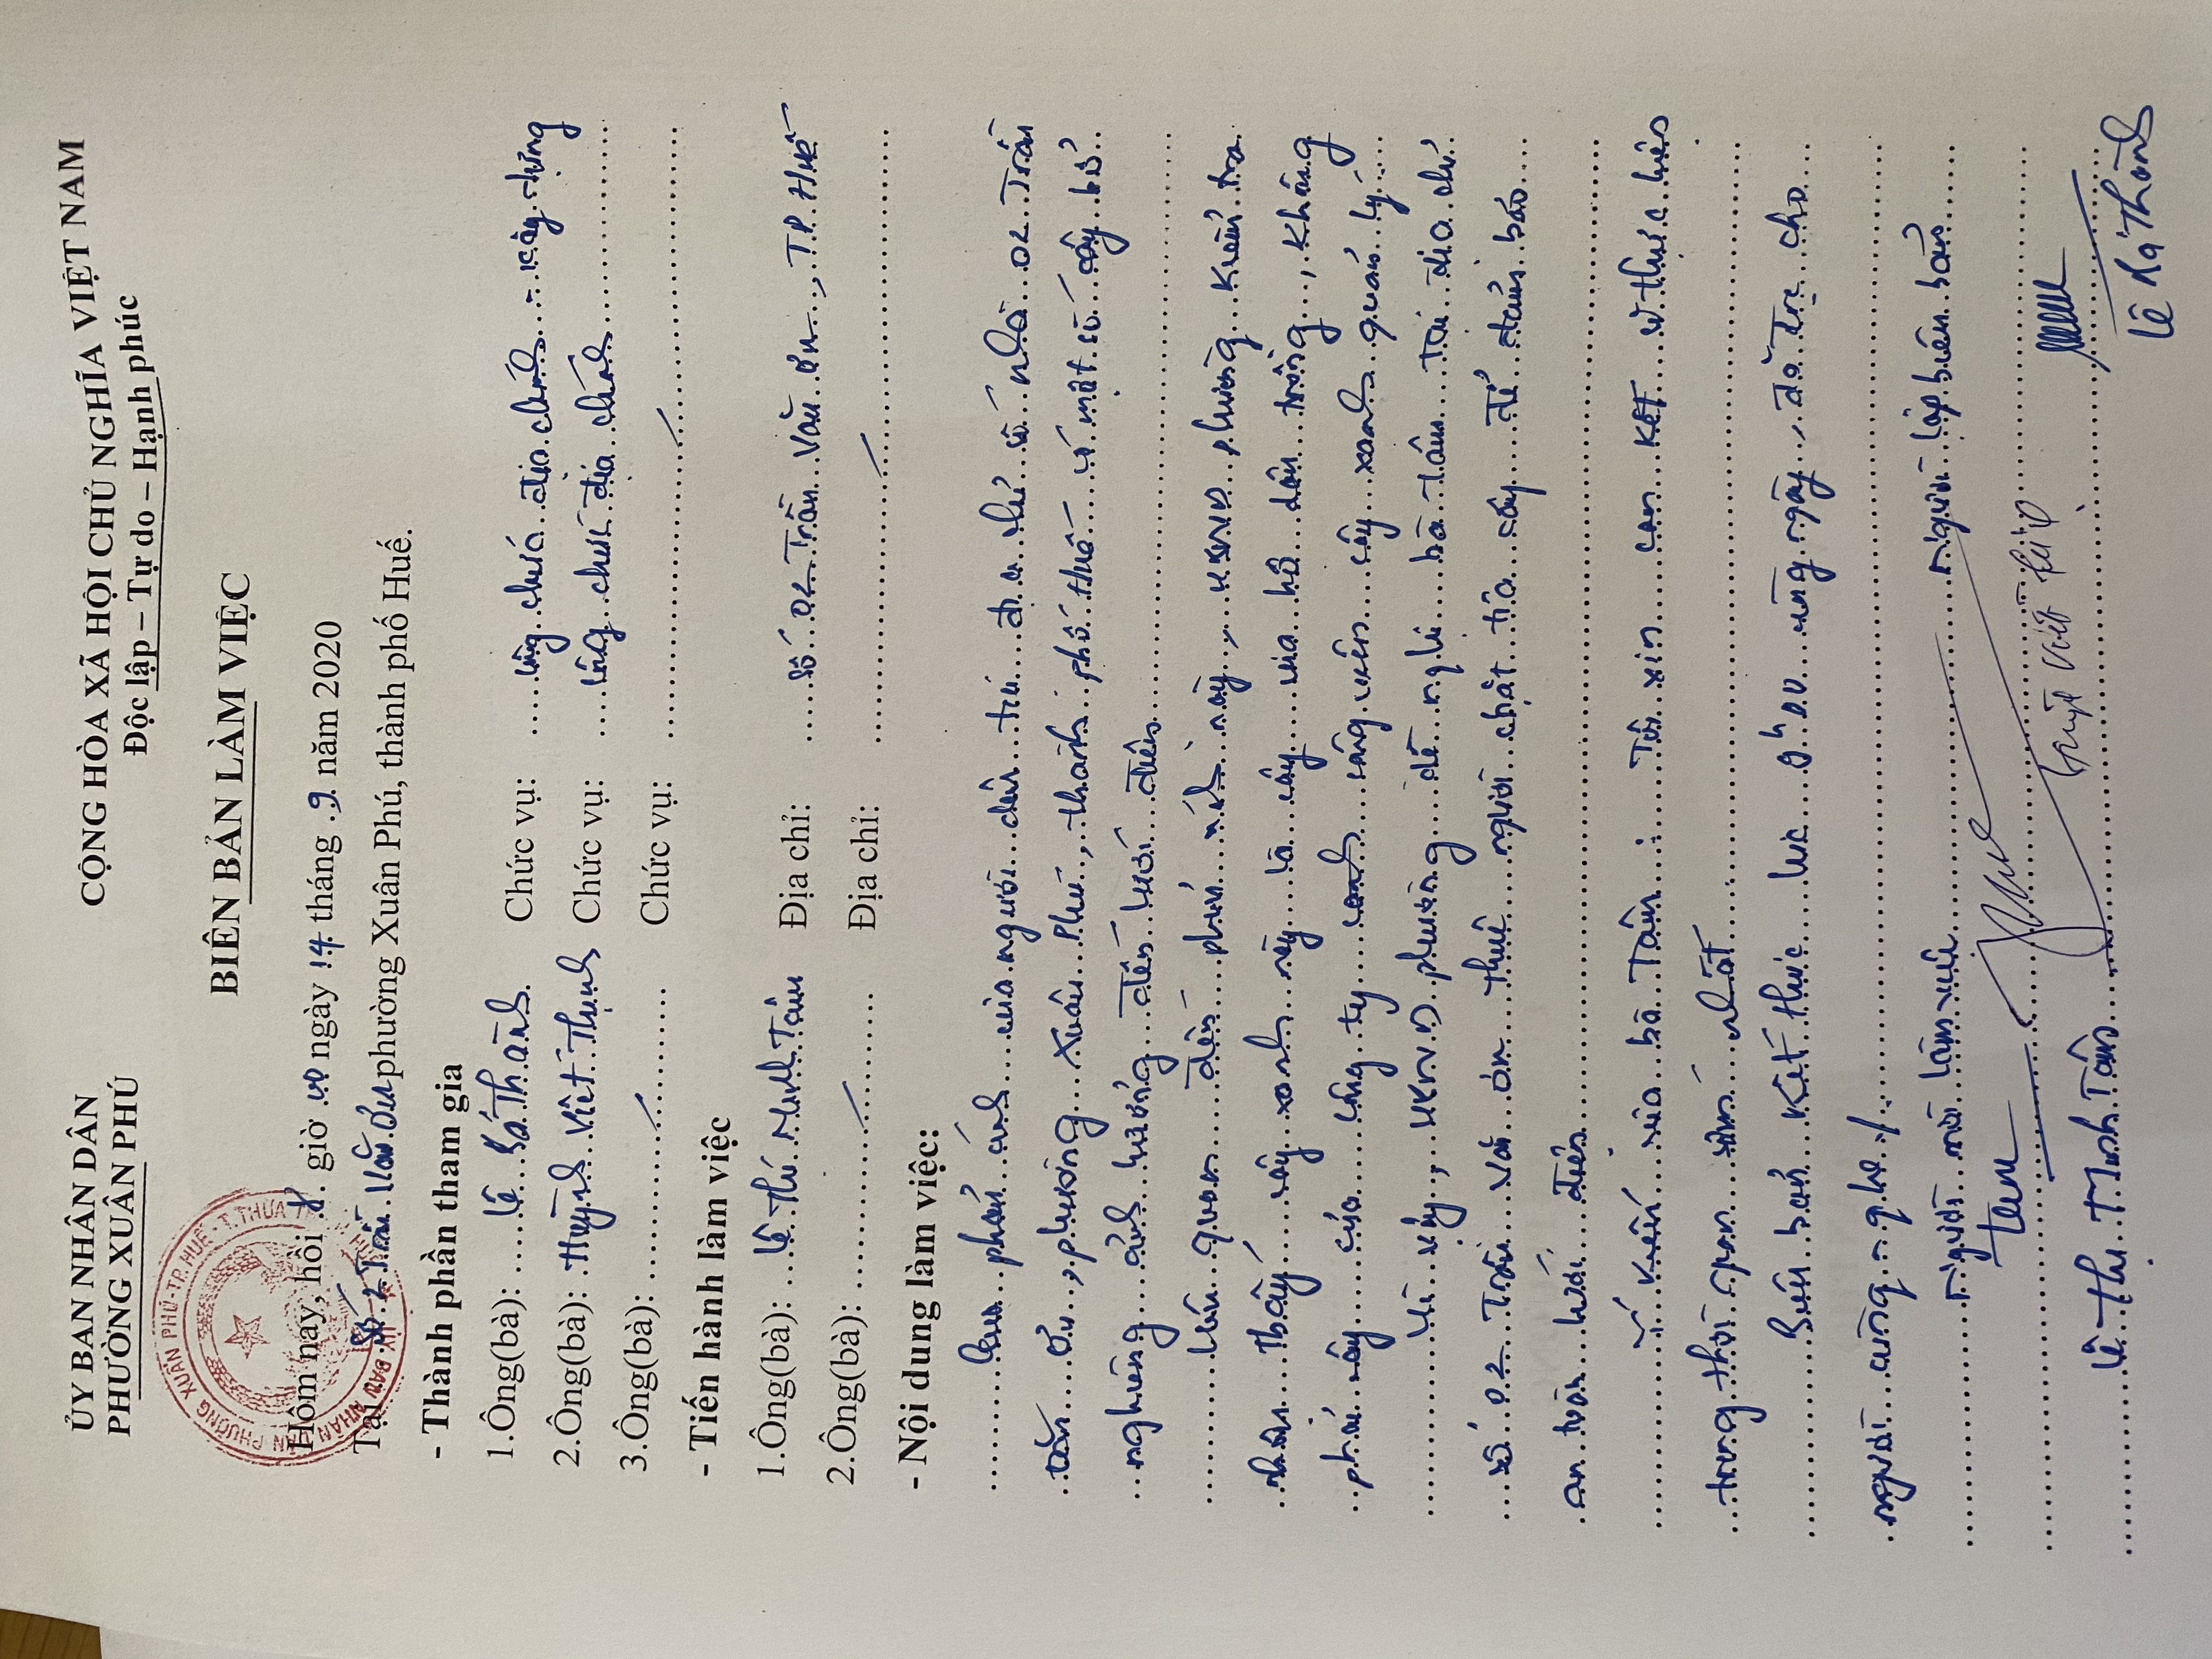 ỦY BAN NHÂN DÂN
PHƯỜNG XUÂN PHÚ
CỘNG HÒA XÃ HỘI CHỦ NGHĨA VIỆT NAM
Độc lập – Tự do – Hạnh phúc
BIÊN BẢN LÀM VIỆC
Hôm nay, hồi 8 giờ 40 ngày 14 tháng 9 năm 2020
Tại: Số 2 Trần Văn Ơn phường Xuân Phú, thành phố Huế.
- Thành phần tham gia
1.Ông(bà): Lê Bá Thành Chức vụ: Công chức địa chính - xây dựng
2.Ông(bà): Huỳnh Viết Thịnh Chức vụ: Công chức địa chính
3.Ông(bà): Chức vụ:
- Tiến hành làm việc
1.Ông(bà): Lê Thị Minh Tâm Địa chỉ: Số 02 Trần Văn Ơn, TP. Huế
2.Ông(bà): Địa chỉ:
- Nội dung làm việc:
phản ánh của người dân tại địa chỉ số nhà 02 Trần
Văn Ơn, phường Xuân Phú, thành phố Huế có một số cây bị
nghiêng ảnh hưởng đến lưới điện
Liên quan đến phản ánh này, UBND phường kiểm tra
nhận thấy cây xanh này là cây của hộ dân trồng, không
phải cây của công ty công viên cây xanh quản lý
Vì vậy, UBND phường đề nghị bà Tâm tại địa chỉ
số 02 Trần Văn Ơn thuê người chặt tỉa cây để đảm bảo
an toàn lưới điện
Ý kiến của bà Tâm: Tôi xin cam kết sẽ thực hiện
trong thời gian sớm nhất
Biên bản kết thúc lúc 9h00 cùng ngày, đã đọc cho
người cùng nghe /.
Người mời làm việc Người lập biên bản
Tam
Lê Thị Minh Tâm Huỳnh Viết Thịnh Lê Bá Thành